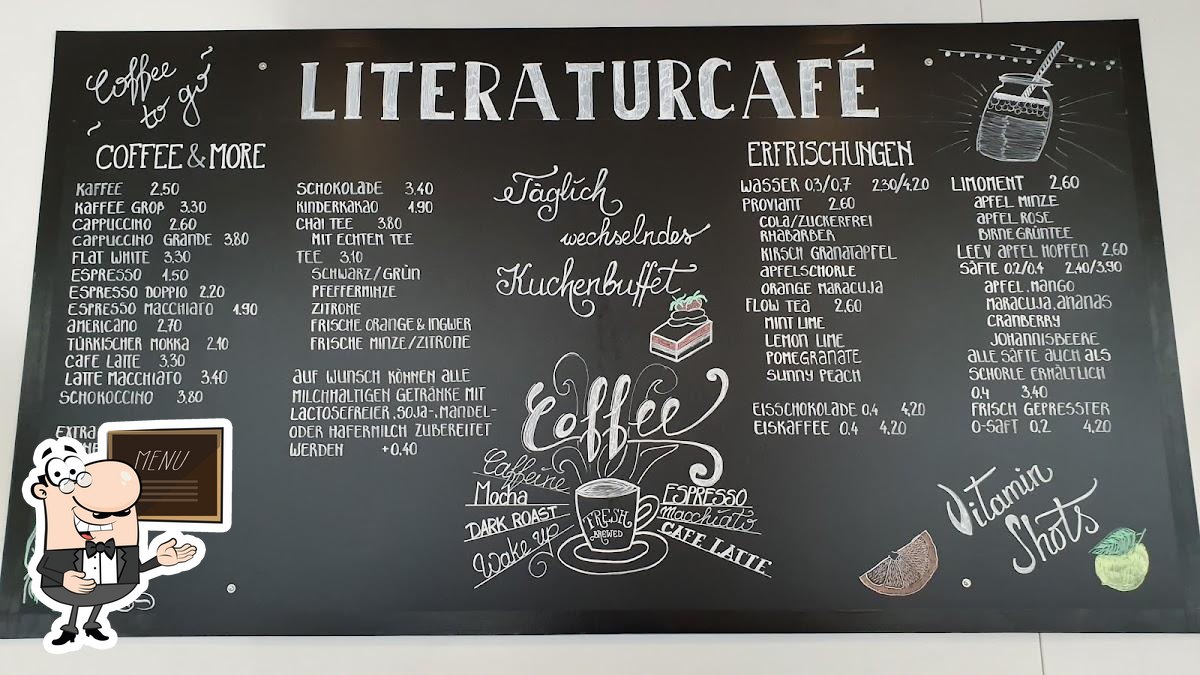 Coffee
to go
LITERATURCAFÉ
COFFEE & MORE
KAFFEE 2,50
KAFFEE GROß 3.30
CAPPUCCINO 2.60
CAPPUCCINO GRANDE 3,80
FLAT WHITE 3.30
ESPRESSO 1.50
ESPRESSO DOPPIO 2.20
ESPRESSO MACCHIATO 1.90
AMERICANO 2.70
TÜRKISCHER MOKKA 2.10
CAFE LATTE 3.30
LATTE MACCHIATO 3,40
SCHOKOCCINO 3.80
EXTRA
SCHOKOLADE 3,40
KINDERKAKAO 1.90
CHAI TEE 3.80
MIT ECHTEM TEE
TEE 3.10
SCHWARZ/GRÜN
PFEFFERMINZE
ZITRONE
FRISCHE ORANGE & INGWER
FRISCHE MINZE/ZITRONE
AUF WUNSCH KÖNNEN ALLE
MILCHHALTIGEN GETRÄNKE MIT
LACTOSEFREIER, SOJA-, MANDEL-
ODER HAFERMILCH ZUBEREITET
WERDEN +0,40
Täglich
wechselndes
Kuchenbuffet
Coffee
Caffeine
Mocha
DARK ROAST
Wake up
FRESH
BREWED
ESPRESSO
Macchiato
CAFE LATTE
ERFRISCHUNGEN
WASSER 0.3/0.7 2.30/4.20
PROVIANT 2.60
COLA/ZUCKERFREI
RHABARBER
KIRSCH GRANATAPFEL
APFELSCHORLE
ORANGE MARACUJA
FLOW TEA 2.60
MINT LIME
LEMON LIME
POMEGRANATE
SUNNY PEACH
EISSCHOKOLADE 0,4 4,20
EISKAFFEE 0,4 4,20
LIMOMENT 2,60
APFEL MINZE
APFEL ROSE
BIRNE GRÜNTEE
LEEV APFEL HOPFEN 2.60
SÄFTE 0.2/0.4 2.40/3.90
APFEL, MANGO
MARACUJA, ANANAS
CRANBERRY
JOHANNISBEERE
ALLE SÄFTE AUCH ALS
SCHORLE ERHÄLTLICH
0.4 3,40
FRISCH GEPRESSTER
O-SAFT 0,2 4,20
Vitamin
Shots
MENU